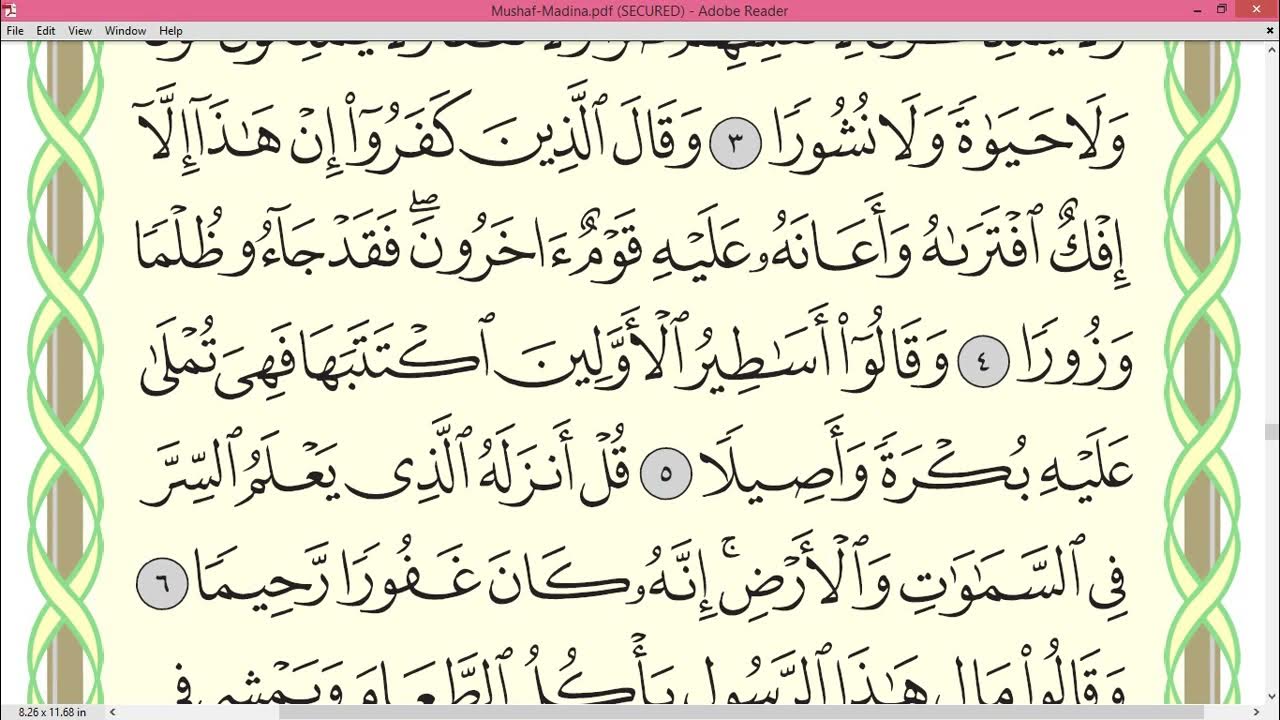 Mushaf-Madina.pdf (SECURED) - Adobe Reader
File Edit View Window Help
وَلَا حَيَوٰةً وَلَا نُشُورًا ٣ وَقَالَ ٱلَّذِينَ كَفَرُوٓا۟ إِنْ هَـٰذَآ إِلَّآ
إِفْكٌ ٱفْتَرَىٰهُ وَأَعَانَهُۥ عَلَيْهِ قَوْمٌ ءَاخَرُونَ ۖ فَقَدْ جَآءُو ظُلْمًا
وَزُورًا ٤ وَقَالُوٓا۟ أَسَـٰطِيرُ ٱلْأَوَّلِينَ ٱكْتَتَبَهَا فَهِىَ تُمْلَىٰ
عَلَيْهِ بُكْرَةً وَأَصِيلًا ٥ قُلْ أَنزَلَهُ ٱلَّذِى يَعْلَمُ ٱلسِّرَّ
فِى ٱلسَّمَـٰوَٰتِ وَٱلْأَرْضِ ۚ إِنَّهُۥ كَانَ غَفُورًا رَّحِيمًا ٦
وَقَالُوا۟ مَالِ هَـٰذَا ٱلرَّسُولِ يَأْكُلُ ٱلطَّعَامَ وَيَمْشِى فِى
8.26 x 11.68 in